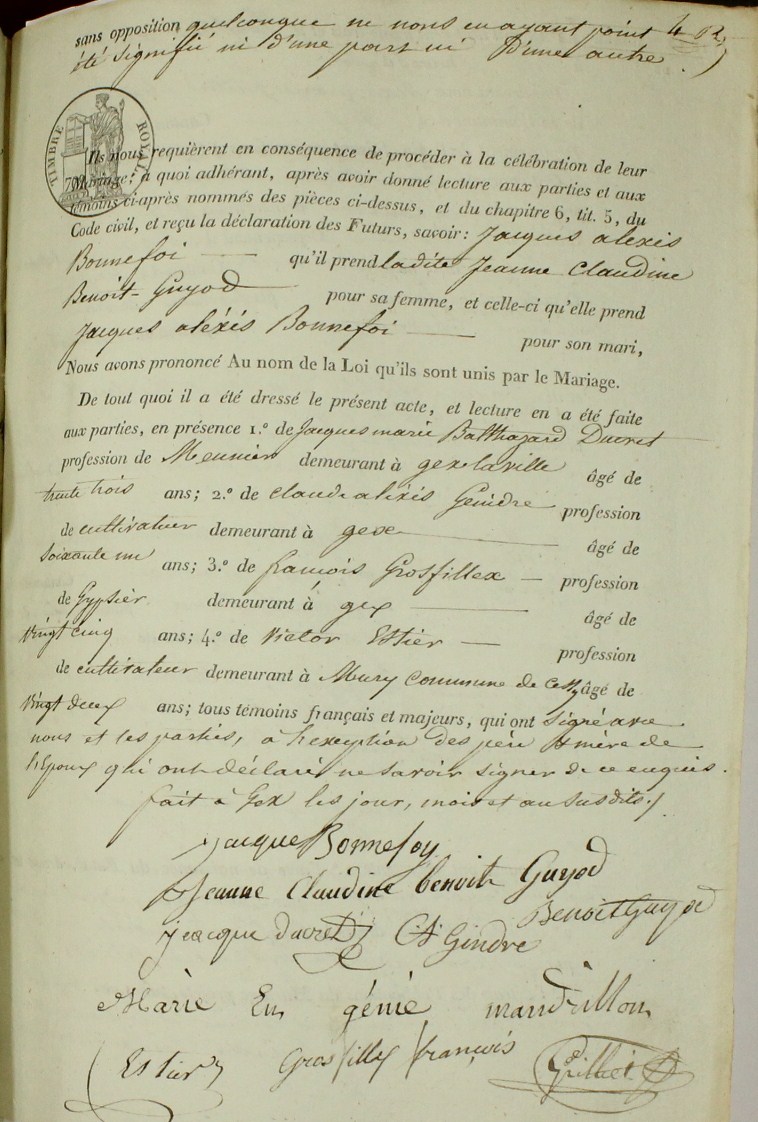 sans opposition quelconque ne nous en ayant point
été signifié ni d'une part ni d'une autre
TIMBRE ROYAL
Ils nous requièrent en conséquence de procéder à la célébration de leur
Mariage; à quoi adhérant, après avoir donné lecture aux parties et aux
témoins ci-après nommés des pièces ci-dessus, et du chapitre 6, tit. 5, du
Code civil, et reçu la déclaration des Futurs, savoir: Jacques alexis
Bonnefoi qu'il prend ladite Jeanne Claudine
Benoit-Guyod pour sa femme, et celle-ci qu'elle prend
Jacques aléxis Bonnefoi pour son mari,
Nous avons prononcé Au nom de la Loi qu'ils sont unis par le Mariage.
De tout quoi il a été dressé le présent acte, et lecture en a été faite
aux parties, en présence 1.º de Jacques marie Balthazard Ducret
profession de Meunier demeurant à gex la ville âgé de
trente trois ans; 2.º de claude aléxis Geindre profession
de cultivateur demeurant à gex âgé de
soixante un ans; 3.º de francois Grosfillex profession
de Gypsier demeurant à gex âgé de
vingt cinq ans; 4.º de Victor Estier profession
de cultivateur demeurant à Mury commune de Cessy âgé de
vingt deux ans; tous témoins français et majeurs, qui ont signé avec
nous et les parties, à l'exeption des père & mère de
l'Epoux qui ont déclaré ne savoir signer de ce enquis.
fait à Gex les jour, mois et an susdits./
Jacque Bonnefoy
Jeanne Claudine benoit Guyod
Benoit Guyod
Jacque ducret CA Gindre
Marie Eu génie mandrillon
Estier Grosfillex françois